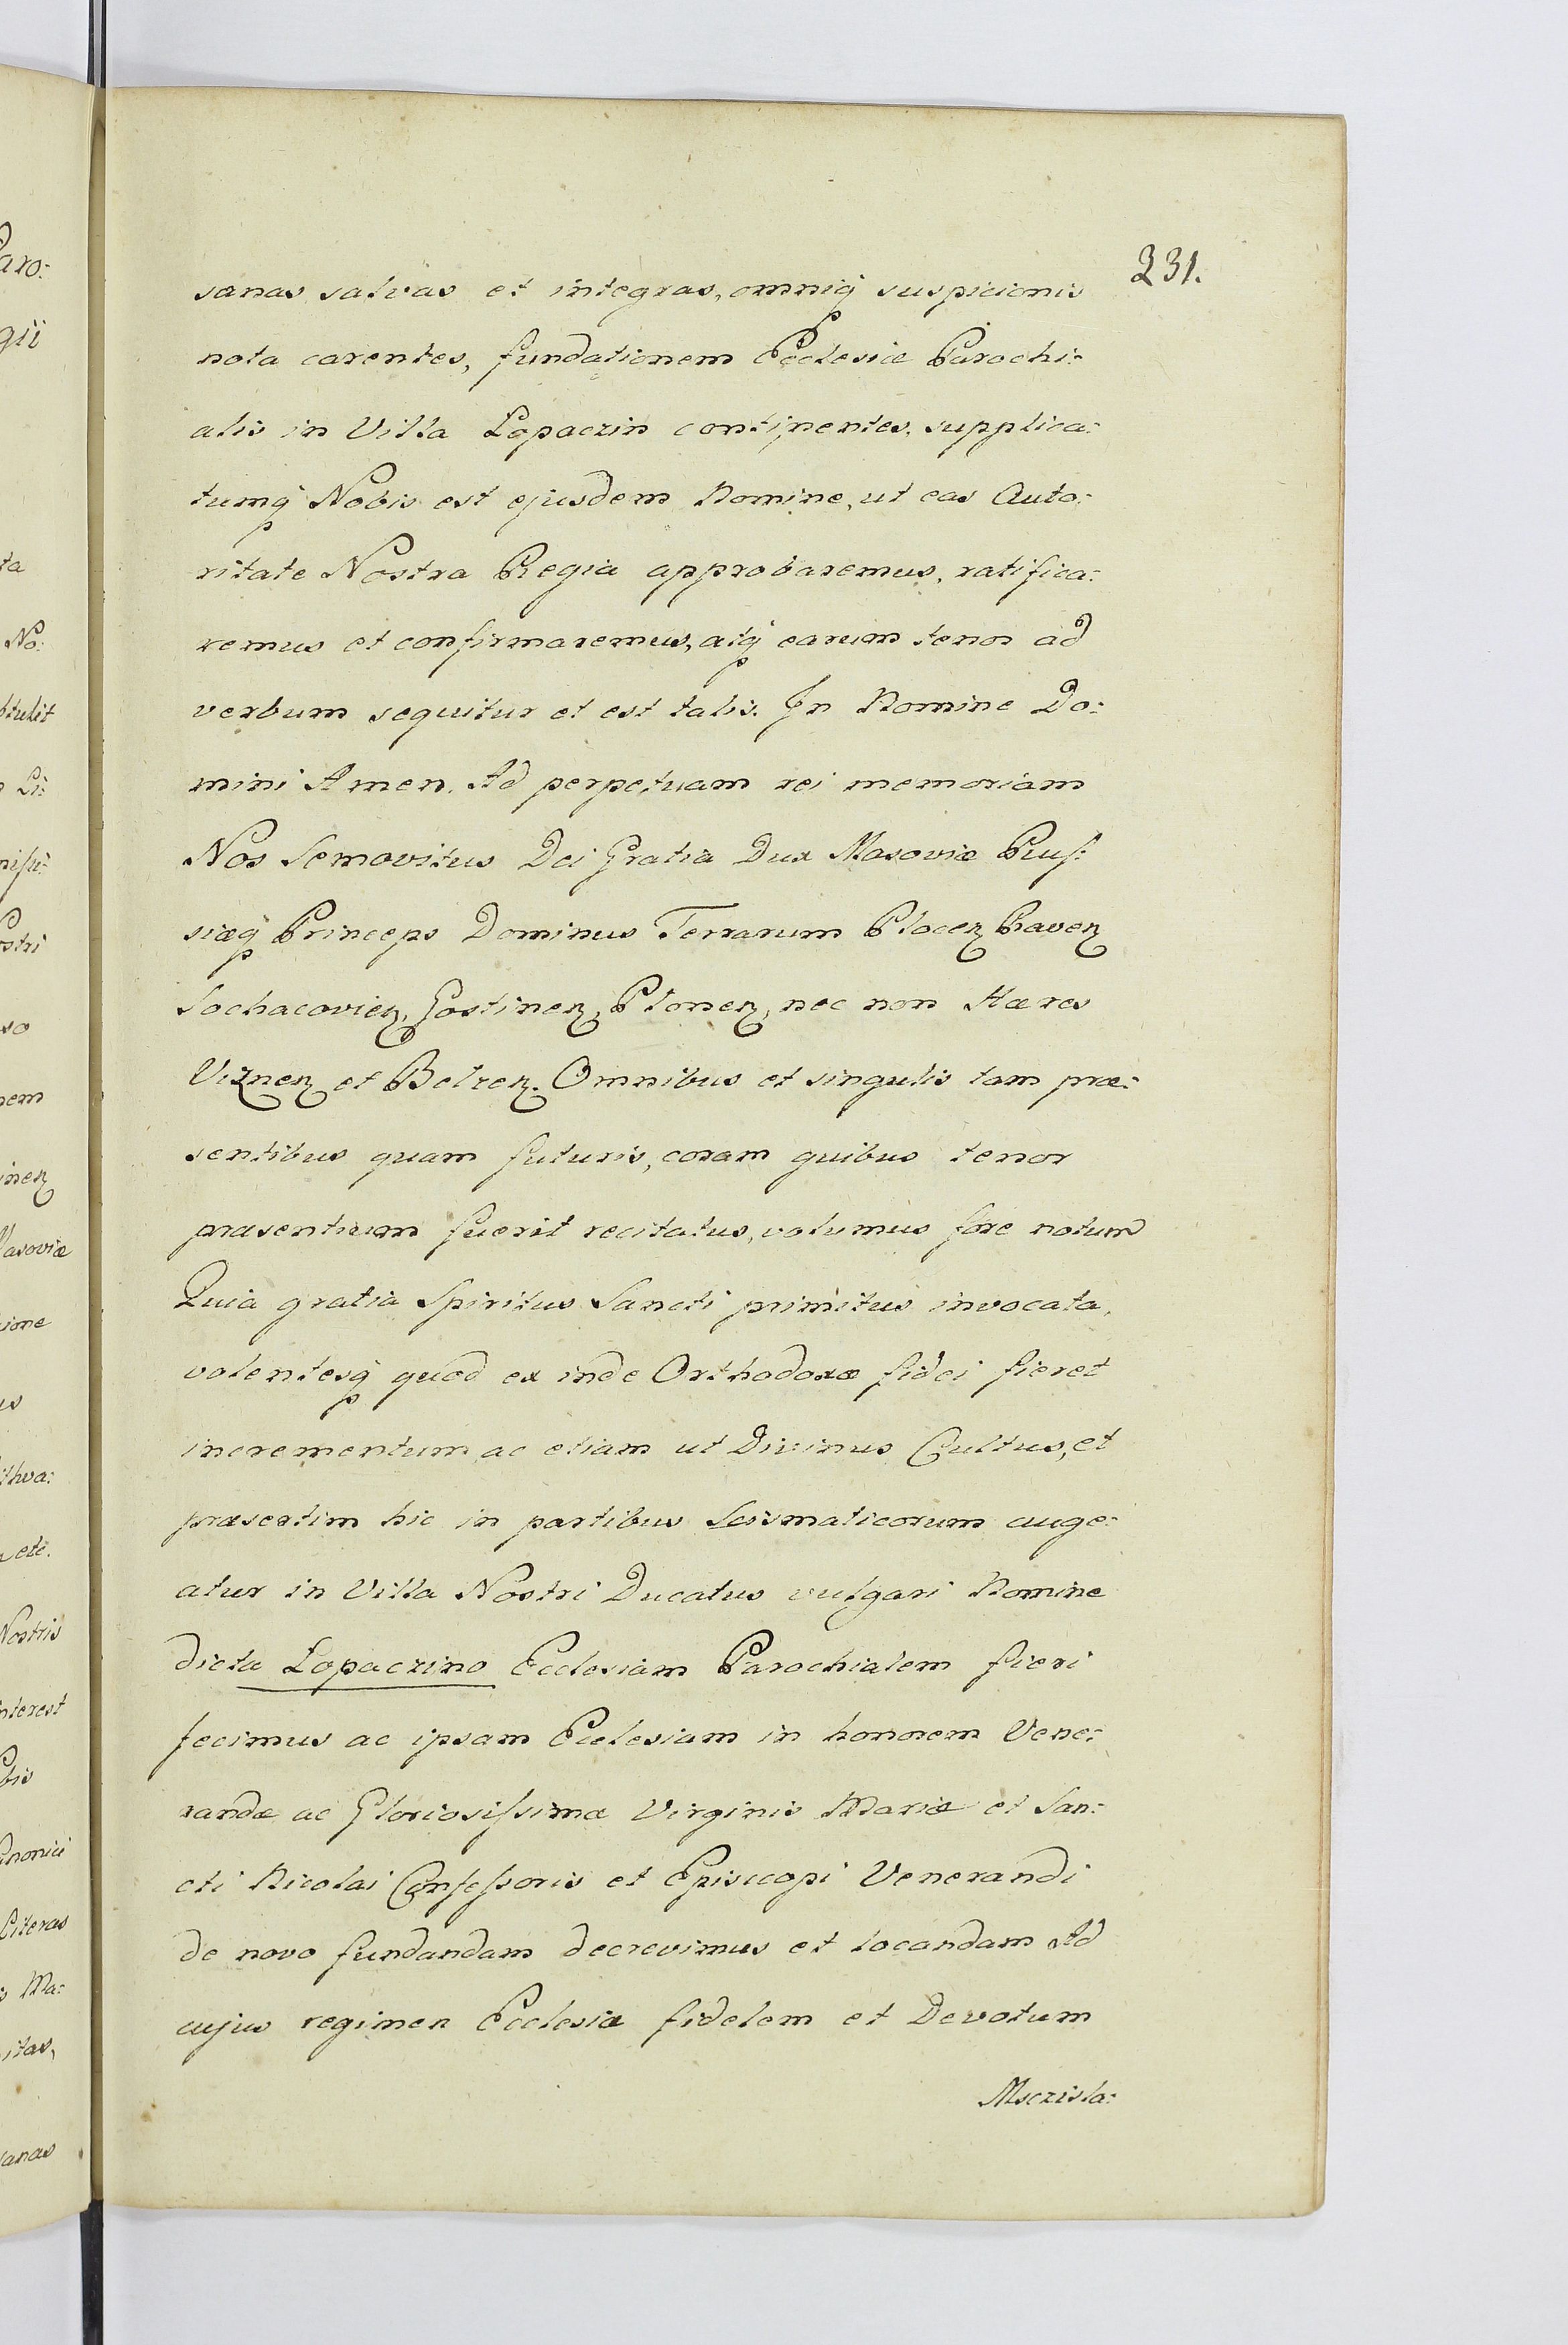 231.
sanas salvas et integras, omniq̃ suspicionis
nota carentes, fundationem Ecclesiæ Parochi:
alis in Villa Lopaczin continentes, supplica:
tumq̃ Nobis est ejusdem Nomine, ut eas Auto:
ritate Nostra Regia approbaremus, ratifica:
remus et confirmaremus, atq̃ earum tenor ad
verbum sequitur et est talis. In Nomine Do:
mini Amen. Ad perpetuam rei memoriam
Nos Semovitus Dei Gratia Dux Masoviæ Rus:
siæq̃ Princeps Dominus Terrarum Plocen Raven
Sochacovien, Gostinen, Plonen, nec non Hæres
Viznen et Belzen. Omnibus et singulis tam præ:
sentibus quam futuris, coram quibus tenor
præsentium fuerit recitatus, volumus fore notum
Quia gratia Spiritus Sancti primitus invocata,
volentesq̃ quod ex inde Orthodoxæ fidei fieret
incrementum, ac etiam ut Divinus Cultus, et
præsertim hic in partibus Scismaticorum auge:
atur in Villa Nostri Ducatus vulgari Nomine
dicta Lopaczino Ecclesiam Parochialem fieri
fecimus ac ipsam Ecclesiam in honorem Vene:
randæ ac Gloriosissimæ Virginis Mariæ et San:
cti Nicolai Confessoris et Episcopi Venerandi
de novo fundandam decrevimus et locandam Ad
cujus regimen Ecclesiæ fidelem et Devotum
Msczisla: